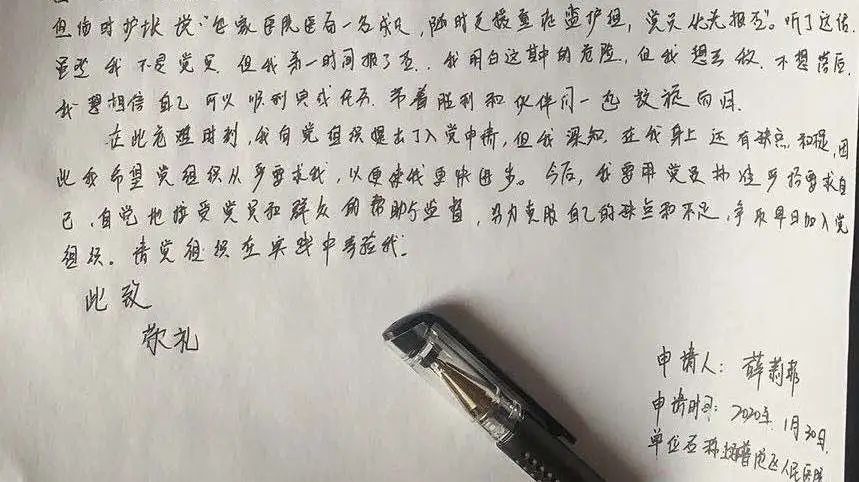 但当时护士长说："每家医院医省一名成员，随时支援重症监护组，党员优先报名"。听了这话，
虽然我不是党员，但我第一时间报了名，我明白这其中的危险，但我想去做，不想落后，
我要相信自己可以顺利完成任务，带着胜利和伙伴们一起凯旋而归。
在此危难时刻，我向党组织提出了入党申请，但我深知，在我身上还有缺点和不足，因
此我希望党组织从严要求我，以便使我更快进步。今后，我要用党员标准严格要求自
己，自觉地接受党员和群众的帮助与监督，努力克服自己的缺点和不足，争取早日加入党
组织。请党组织在实践中考验我。
此致
敬礼
申请人：薛莉菲
申请时间：2020年1月30日
单位：人民医院